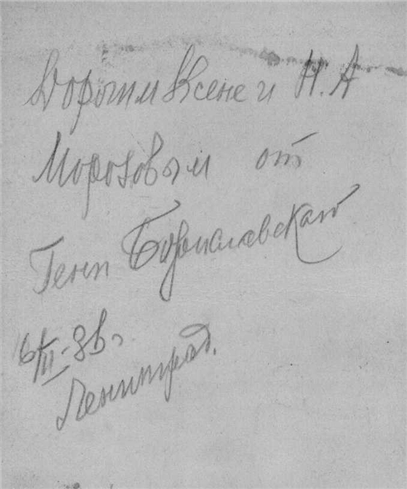 Дорогим Ксене и Н.А
Морозовым от
Гени Бориславской
6/III-36г
Ленинград.